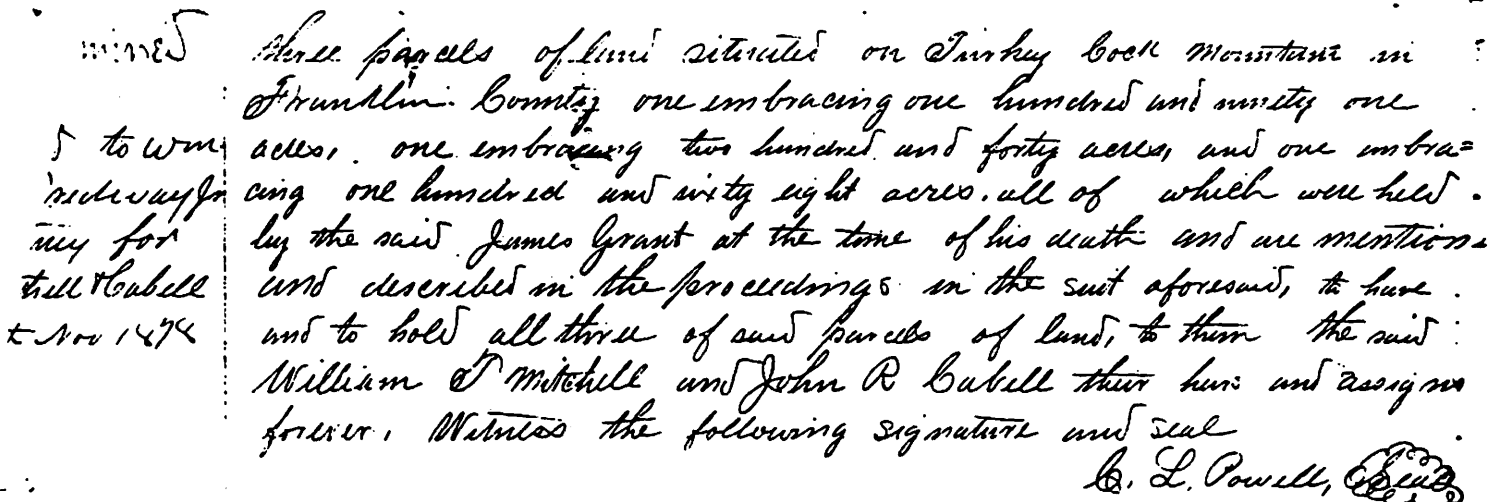 mined
d to Wm
for
& Cabell
Nov 1878
three parcels of land situated on Turkey Cock Mountain in
Franklin County one embracing one hundred and ninety one
acres, one embracing two hundred and forty acres, and one embra=
cing one hundred and sixty eight acres. all of which were held
by the said James Grant at the time of his death and are mention
and described in the proceedings in the suit aforesaid, to have
and to hold all three of said parcels of land, to them the said
William T Mitchell and John R Cabell their heirs and assigns
forever. Witness the following signature and seal
C. L. Powell, Seal